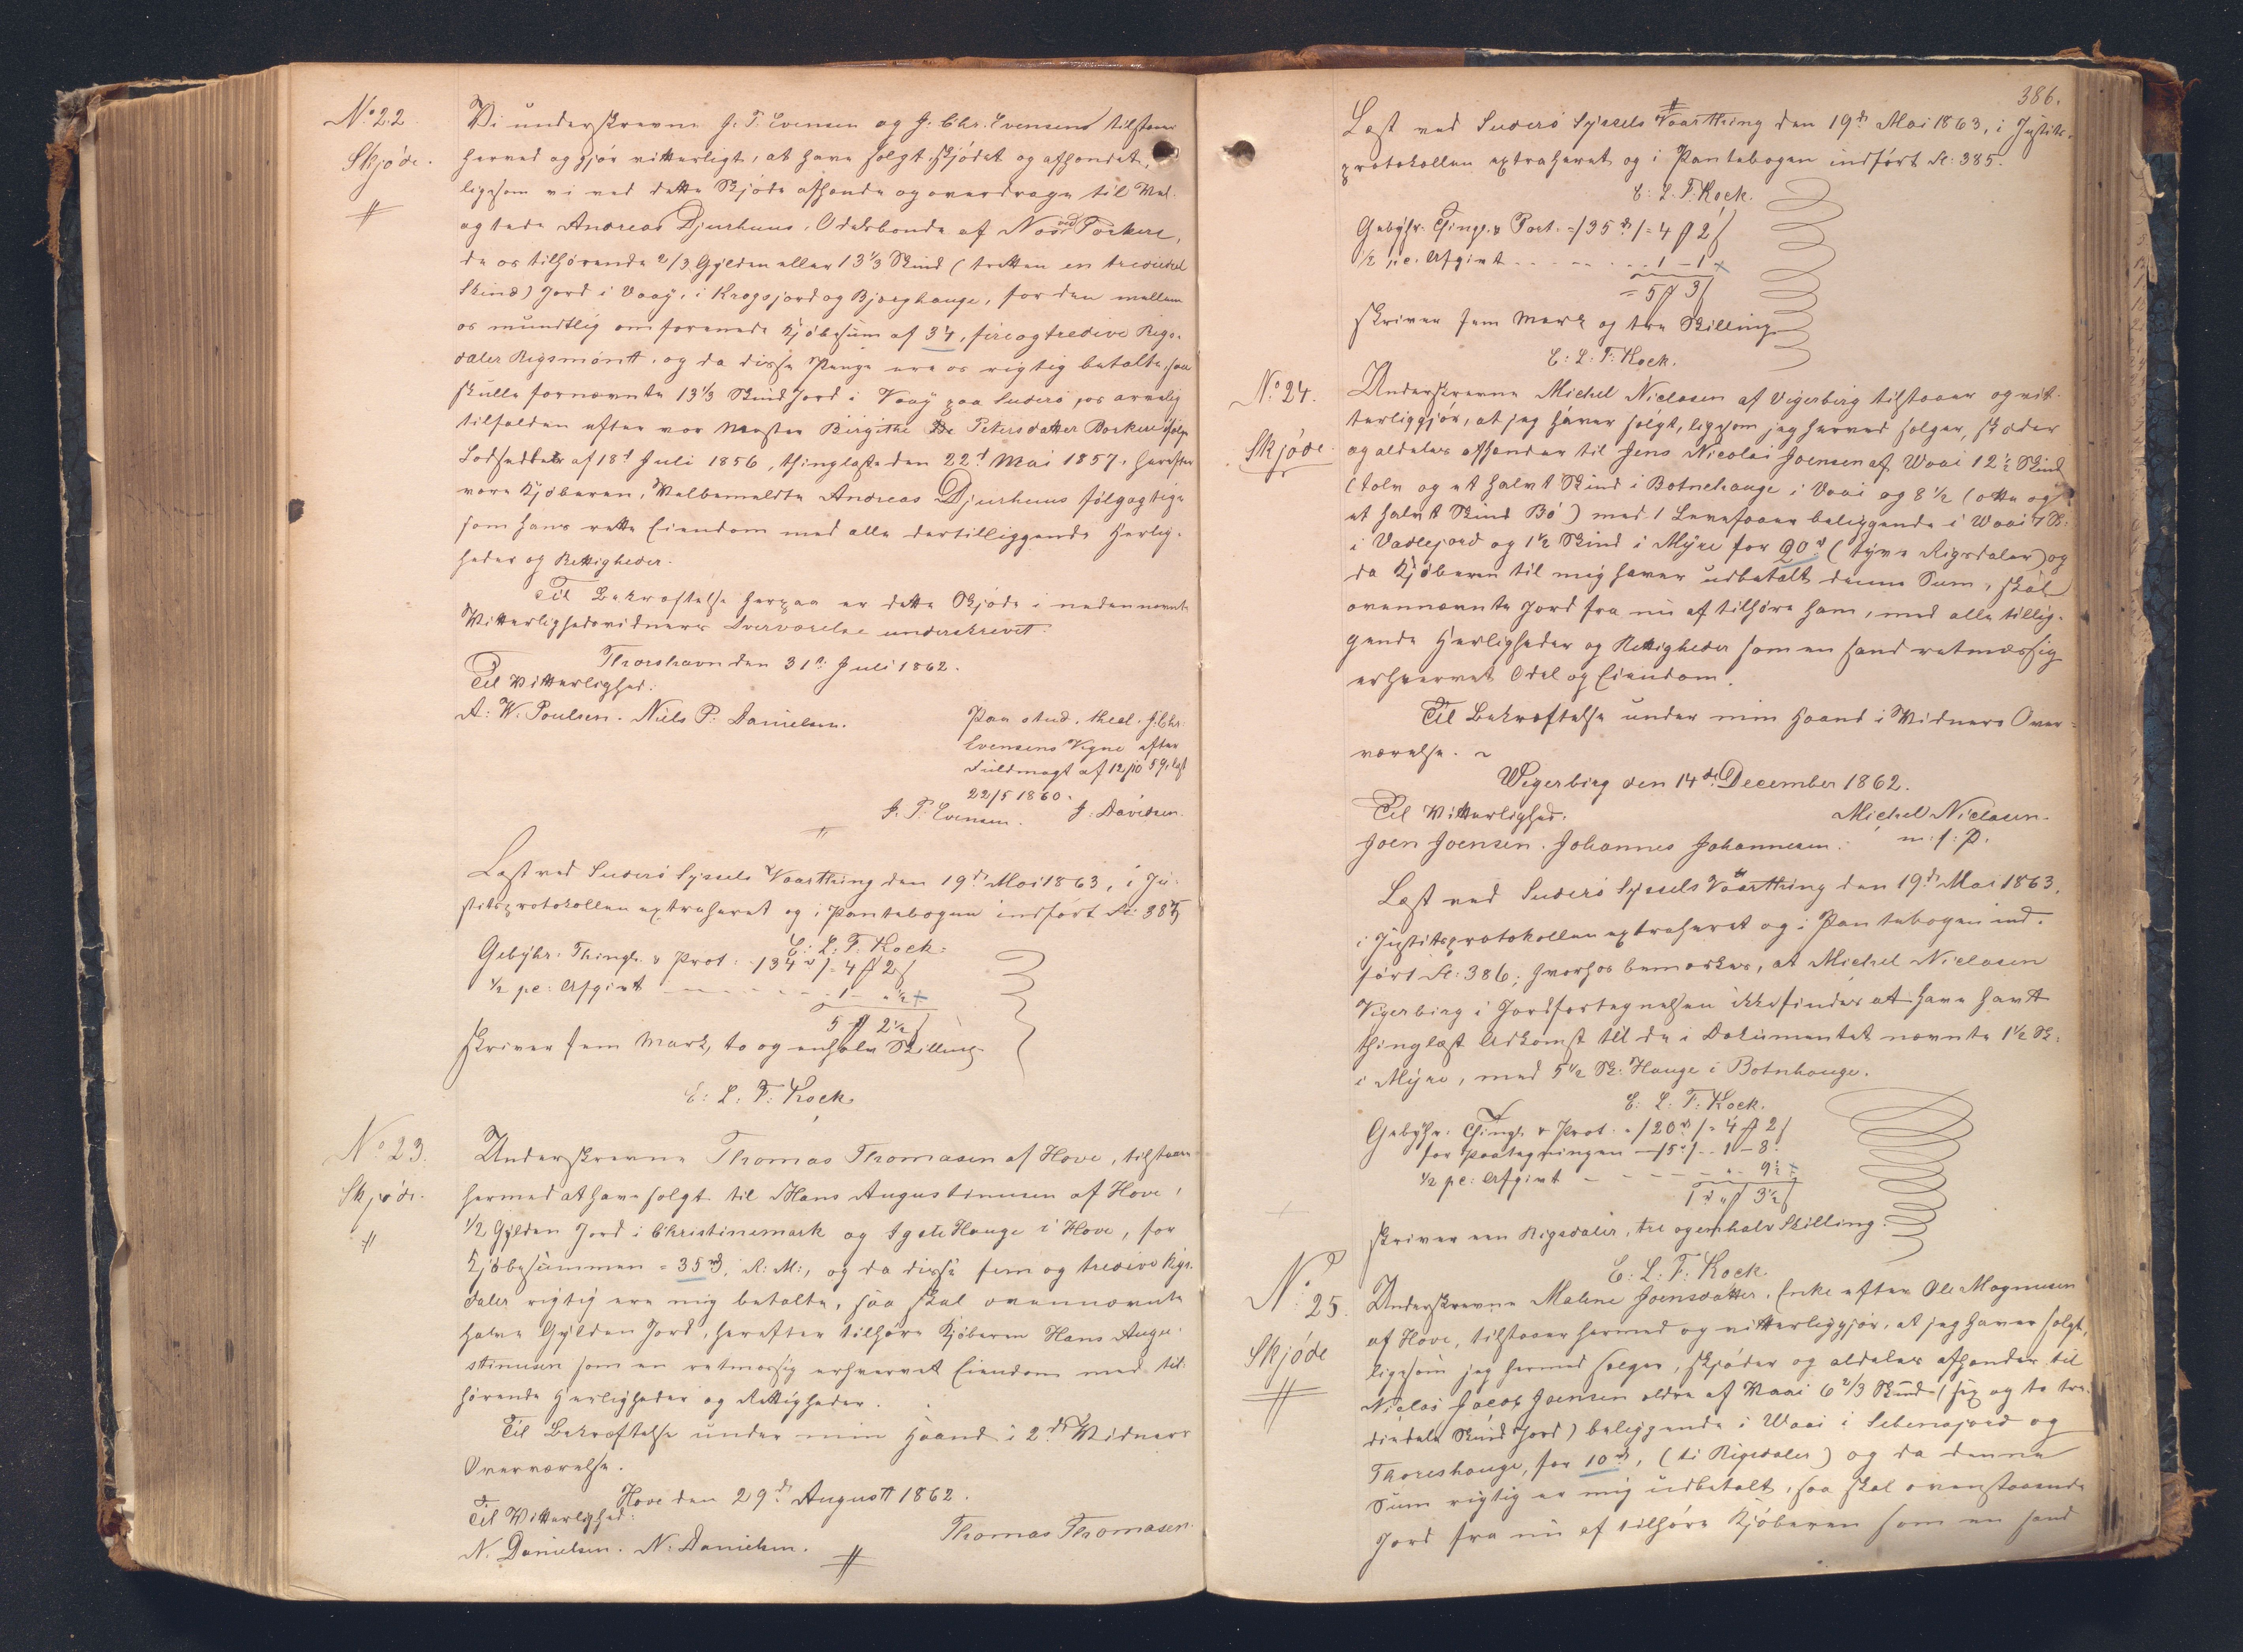 No 22
Skjöde.
Vi underskrevne J. P. Evensen og J. Chr. Evensen tilstaae
herved og gjør vitterligt, at have solgt, skjödet og afhendet,
ligesom vi ved dette Skjöde afhende og overdrage til Vel-
agtede Andreas Djurhuus, Odelsbonde af Nes ved Porkere,
de os tilhörende 2/3 Gylden eller 13 1/3 Skind (tretten en trediedel
Skind) Jord i Vaag, i Krogsjord og Bjarghauge, for den mellem
os mundtlig omforenede Kjöbesum af 34, fireogtredive Rigs-
daler Rigsmönt, og da disse Penge ere os rigtig betalte, saa
skulle fornævnte 13 1/3 Skind Jord i Vaag paa Suderö, os arvelig
tilfalden efter vor Moster Birgithe Petersdatter Porkere ifölge
Lodseddel af 18d Juli 1856, thinglæst den 22d Mai 1857, herefter
være Kjöberen, Velbemeldte Andreas Djurhuus fölgagtige
som hans rette Eiendom med alle dertilliggende Herlig-
heder og Rettigheder.
Til Bekræftelse herpaa er dette Skjöde i nedennævnte
Vitterlighedsvidners Overværelse underskrevet.
Thorshavn den 31te Juli 1862.
Til Vitterlighed:
A: W. Poulsen. Niels P. Danielsen.
Paa stud. theol. J. Chr.
Evensens Vegne efter
Fuldmagt af 12/10 59, læst
22/5 1860.
J. P. Evensen. J: Davidsen.
Læst ved Suderö Syssels Vaarthing den 19d Mai 1863, i Ju-
stitsprotokollen extraheret og i Pantebogen indfört Fl: 385
E: L: F: Kock.
Gebyhr: Thingl. & Prot: /34 rd/ = 4 # 2 ſ
1/2 pc: Afgivt - - - 1 - „ 1/2
5 # 2 1/2 ſ
skriver fem Mark, to og enhalv Skilling
E: L: F: Kock.
No 23.
Skjöde.
Underskrevne Thomas Thomasen af Hove, tilstaaer
hermed at have solgt til Hans Augustinusen af Hove,
1/2 Gylden Jord i Christinemark og Hauge i Hove, for
Kjöbesummen = 35 rd, R: M:, og da disse fem og tredive Rigs-
daler rigtig ere mig betalte, saa skal ovennævnte
halve Gylden Jord, herefter tilhöre Kjöberen Hans Augu-
stinusen som en retmæssig erhvervet Eiendom med til-
hörende Herligheder og Rettigheder.
Til Bekræftelse under min Haand i 2de Vidners
Overværelse.
Hove den 29d August 1862.
Til Vitterlighed:
N. Danielsen. N. Danielsen. Thomas Thomasen.
386.
Læst ved Suderö Syssels Vaarthing den 19d Mai 1863, i Justits-
protokollen extraheret og i Pantebogen indfört Fl: 385.
E: L: F: Kock.
Gebyhr. Thingl. & Prot. = /35 rd/ = 4 # 2 ſ
1/2 pc. Afgivt - - - 1 - 1
= 5 # 3 ſ
skriver fem Mark og tre Skilling
E: L: F: Kock.
No 24.
Skjöde.
Underskrevne Michel Niclasen af Vigerbirg tilstaaer og vit-
terliggjör, at jeg haver solgt, ligesom jeg herved sælger, skøder
og aldeles afhender til Jens Nicolai Joensen af Waai 12 1/2 Skind
(tolv og et halvt Skind i Botnehauge i Vaai og 8 1/2 (otte og
et halvt Skind Bö) med 1 beliggende i Waai 7 Sk:
i Vadlejord og 1 1/2 Skind i Myre for 20 rd (tyve Rigsdaler) og
da Kjöberen til mig haver udbetalt denne Sum, skal
ovennævnte Jord fra nu af tilhöre ham, med alle tillig-
gende Herligheder og Rettigheder som en sand retmæssig
erhvervet Odel og Eiendom.
Til Bekræftelse under min Haand i Vidners Over-
værelse.
Vigerbirg den 14de December 1862.
Til Vitterlighed: Michel Niclasen.
Joen Joensen. Johannes Johannesen. m: f: P.
Læst ved Suderö Syssels Vaarthing den 19d Mai 1863,
i Justitsprotokollen extraheret og i Pantebogen ind-
fört Fl: 386; hvorhos bemærkes, at Michel Niclasen
Vigerbirg i Jordfortegnelsen ikke findes at have havt
thinglæst Adkomst til de i Dokumentet nævnte 1 1/2 Sk:
i Myre, med 5 1/2 Sk: Hauge i Botnhauge.
E: L: F: Kock.
Gebyhr. Thingl. & Prot. = /20 rd/ = 4 # 2 ſ
for Paategningen - /5 / - 1 - 8.
1/2 pc: Afgivt - - - „ - 9 1/2
1 rd „ # 3 1/2 ſ
skriver een Rigsdaler, tre og enhalv Skilling.
E: L: F: Kock.
No 25.
Skjöde
Underskrevne Malene Joensdatter, Enke efter Ole Magnusen
af Hove, tilstaaer hermed og vitterliggjör, at jeg haver solgt,
ligesom jeg hermed sælger, skjöder og aldeles afhender til
Niclas Jacob Joensen ældre af Waai 6 2/3 Skind (sex og to tre-
diedele Skind Jord) beliggende i Waai i og
Thoreshauge, for 10 rd, (ti Rigsdaler) og da denne
Sum rigtig er mig udbetalt, saa skal ovenstaaende
Jord fra nu af tilhöre Kjöberen som en sand